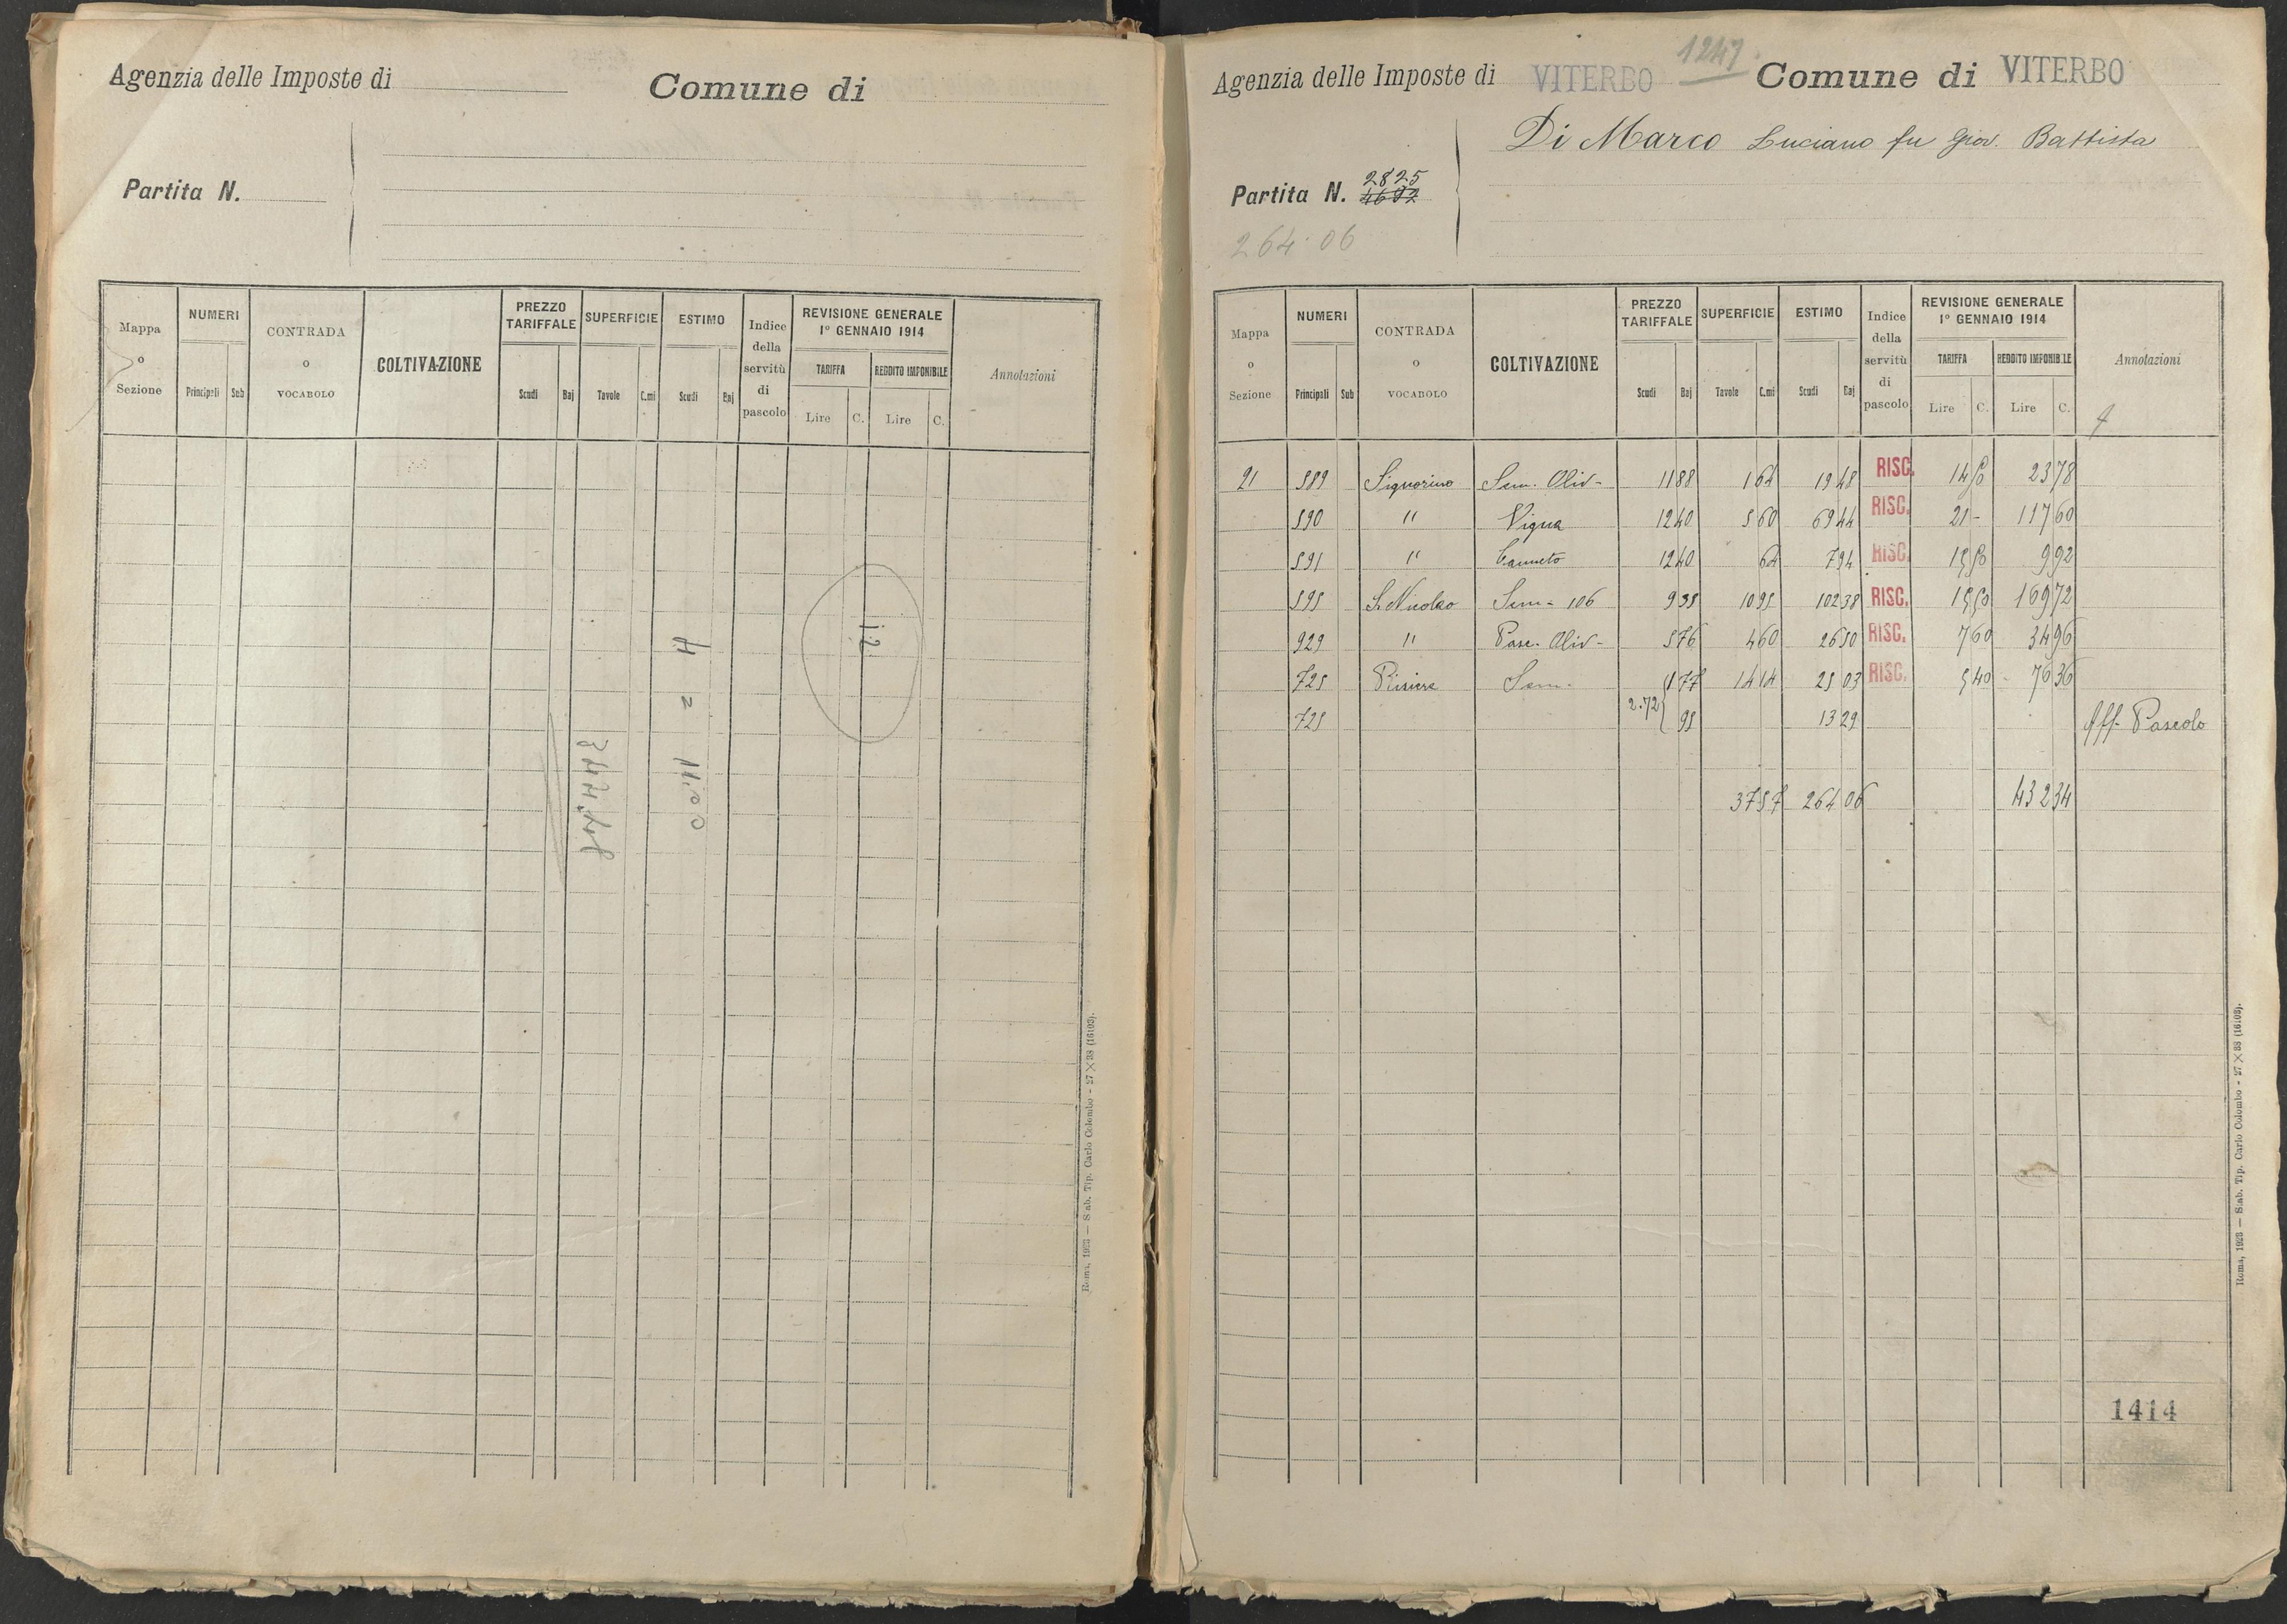 Agenzia delle Imposte di
Comune di
Partita N.
Mappa o Sezione
NUMERI
Principali Sub
CONTRADA o VOCABOLO
COLTIVAZIONE
PREZZO TARIFFALE
Scudi Baj
SUPERFICIE
Tavole C.mi
ESTIMO
Scudi Baj
Indice della servitù di pascolo
REVISIONE GENERALE 1° GENNAIO 1914
TARIFFA
Lire C.
REDDITO IMPONIBILE
Lire C.
Annotazioni
12
4 = 11.00
Roma, 1923 — Stab. Tip. Carlo Colombo - 27 × 38 (16103).
1247.
Agenzia delle Imposte di VITERBO Comune di VITERBO
Di Marco Luciano fu Giov. Battista
2825
Partita N. 4692
264.06
Mappa o Sezione
NUMERI
Principali Sub
CONTRADA o VOCABOLO
COLTIVAZIONE
PREZZO TARIFFALE
Scudi Baj
SUPERFICIE
Tavole C.mi
ESTIMO
Scudi Baj
Indice della servitù di pascolo
REVISIONE GENERALE 1° GENNAIO 1914
TARIFFA
Lire C.
REDDITO IMPONIBILE
Lire C.
Annotazioni
21 589 Signorino Sem. Oliv- 11 88 1 64 19 48 RISC. 14 50 23 78
590 " Vigna 12 40 5 60 69 44 RISC. 21 - 117 60
591 " Canneto 12 40 64 7 94 RISC. 15 50 9 92
595 S. Nicolao Sem- 106 9 35 10 95 102 38 RISC. 15 50 169 72
929 " Pasc. Oliv- 5 76 4 60 26 50 RISC. 7 60 34 96
725 Risiere Sem- 1 77 14 14 25 03 RISC. 5 40 76 36
2.72
725 95 13 29 Aff. Pascolo
37 57 264 06 432 34
1414
Roma, 1923 — Stab. Tip. Carlo Colombo - 27 × 38 (16103).